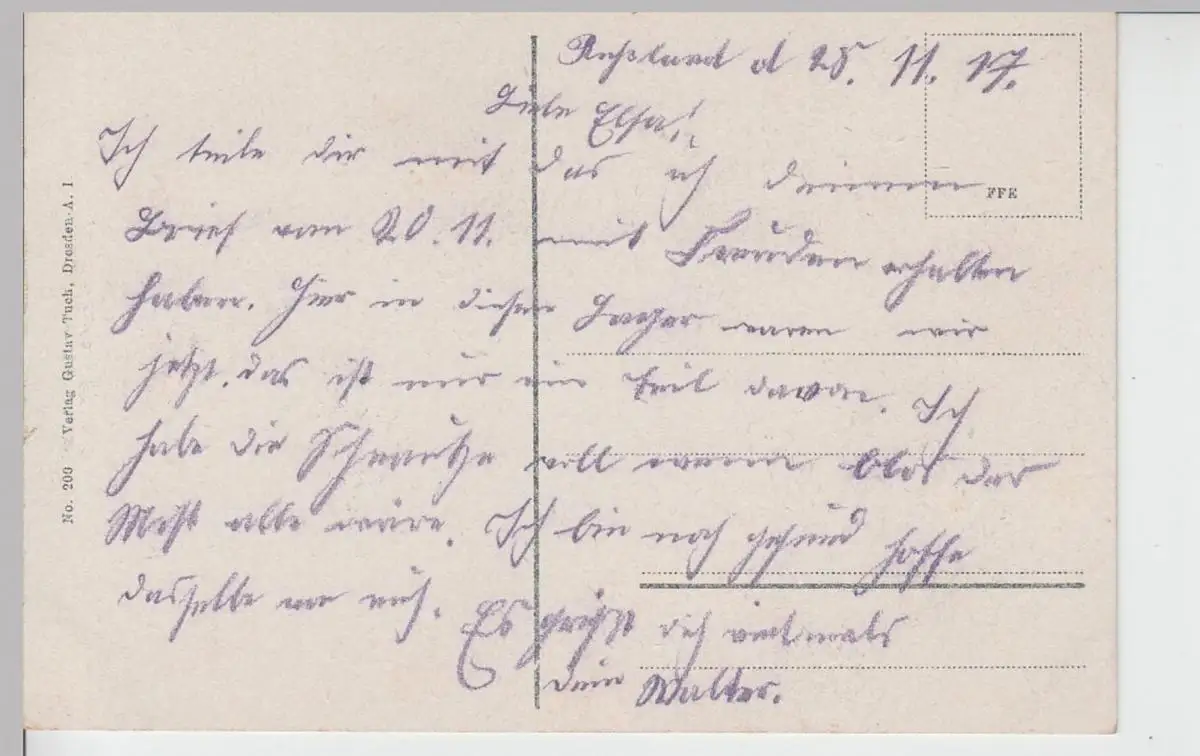 Rußland d 28. 11. 17.
Liebe Elsa!
Ich teile dir mit das ich deinen
Brief vom 20. 11. mit Freuden erhalten
haben. Hier in diesen Lager waren wir
jetzt. das ist nur ein Teil davon. Ich
habe die Schnautze voll wenn blos der
Mist alle wäre. Ich bin noch gesund hoffe
dasselbe von euch. Es grüßt dich vielmals
dein Walter.
FFE
No. 200 Verlag Gustav Tuch, Dresden-A. 1